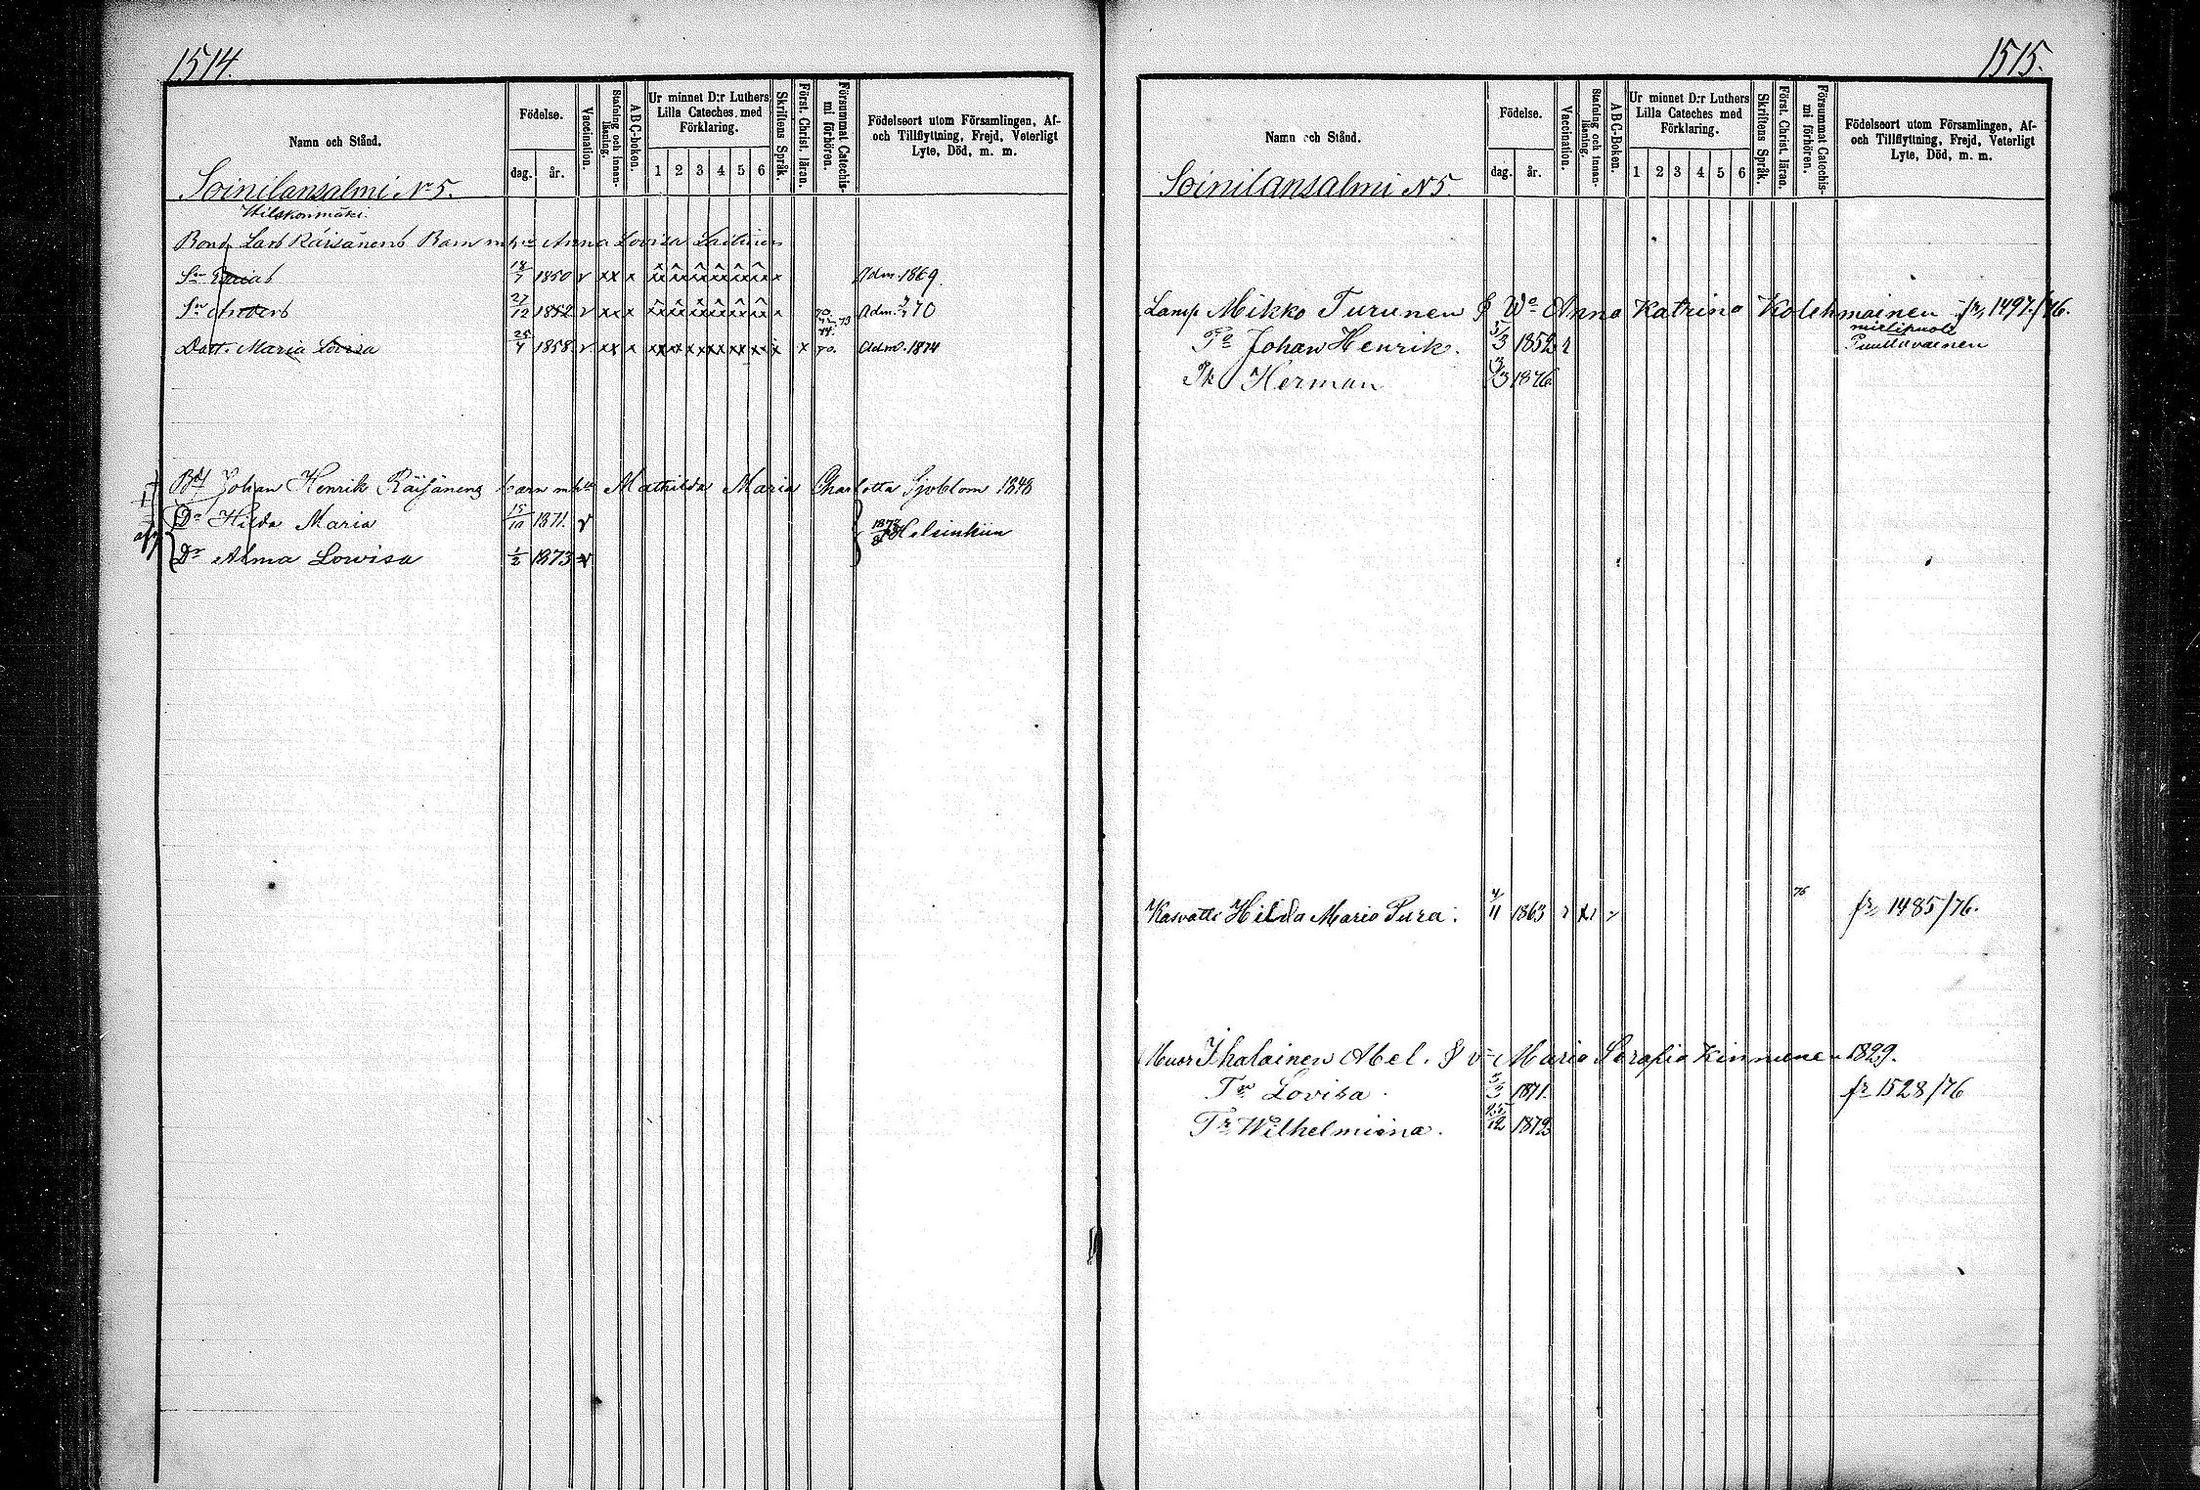 1514.
Namn och Stånd.
Födelse.
dag. år.
Vaccination.
Stafning och innanläsning.
ABC-boken.
Ur minnet D:r Luthers Lilla Cateches. med Förklaring.
1 2 3 4 5 6
Skriftens Språk.
Först. Christ. läran.
Försummat Catechismi förhören.
Födelseort utom Församlingen, Af- och Tillflyttning, Frejd, Veterligt Lyte, Död, m. m.
Soinilansalmi No 5.
Bond. Lars Räisänens Barn m h:u Anna Lovisa Laitinen
Sn 18/7 1850 v xx x x Adm. 1869.
Sn Anders 27/12 1852 v xx x x 70. 73 Adm. 70
Dott. Maria Lovisa 25/7 1858 v xx x xx xx xx xx xx xx x x 70. Adm. 1874
Johan Henrik Räisänens barn m h:u Mathilda Maria Charlotta Sjöblom 1848
Dr Hilda Maria 15/10 1871. v Helsinkiin
Dr Alma Lowisa 1/2 1873 v
1515.
Namn och Stånd.
Födelse.
dag. år.
Vaccination.
Stafning och innanläsning.
ABC-Boken.
Ur minnet D:r Luthers Lilla Cateches med Förklaring.
1 2 3 4 5 6
Skriftens Språk.
Först. Christ. läran.
Försummat Catechismi förhören.
Födelseort utom Församlingen, Af- och Tillflyttning, Frejd, Veterligt Lyte, Död, m. m.
Soinilansalmi N 5.
Lamp Mikko Turunen & Wo Anna Katrina Kolehmainen fr. 1497/76.
Johan Henrik. 5/3 1852
Herman 1876
Kasvatti Hilda Maria Pura. 4/11 1863 76 fr. 1485/76.
Ihalainen Abel. & v. Maria Serafia Kinnunen 1829.
Tr Lovisa 1871. fr 1528/76
Tr Wilhelmiina. 25/12 1872